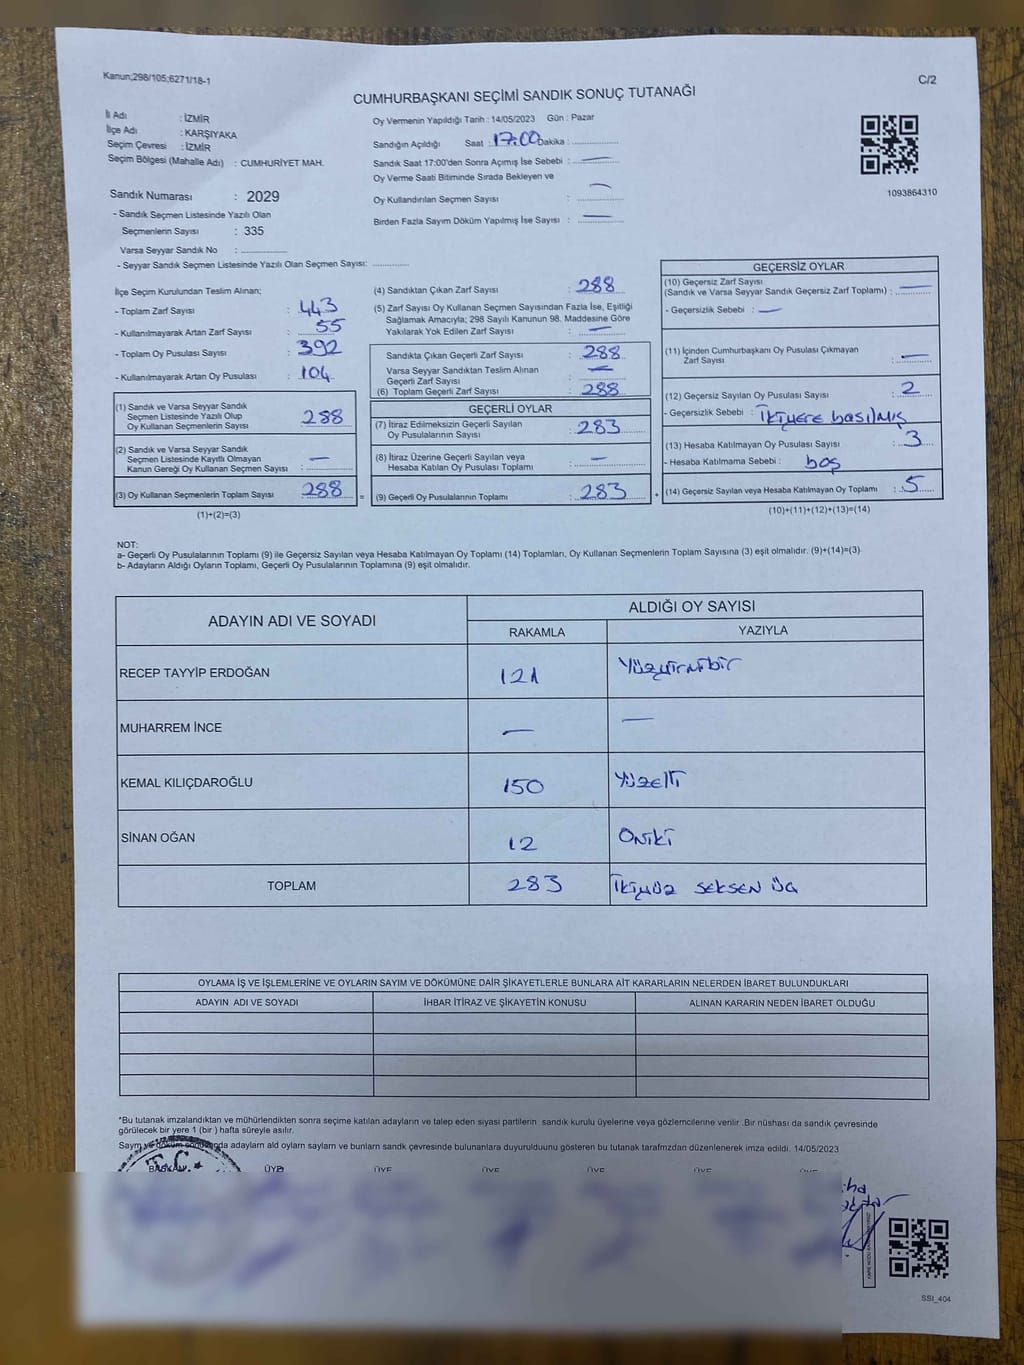 Kanun;298/105;6271/18-1
C/2
CUMHURBAŞKANI SEÇİMİ SANDIK SONUÇ TUTANAĞI
İl Adı : İZMİR
İlçe Adı : KARŞIYAKA
Seçim Çevresi : İZMİR
Seçim Bölgesi (Mahalle Adı) : CUMHURİYET MAH.
Sandık Numarası : 2029
- Sandık Seçmen Listesinde Yazılı Olan
Seçmenlerin Sayısı : 335
Varsa Seyyar Sandık No :
- Seyyar Sandık Seçmen Listesinde Yazılı Olan Seçmen Sayısı:
Oy Vermenin Yapıldığı Tarih : 14/05/2023 Gün : Pazar
Sandığın Açıldığı Saat : 17:00 Dakika :
Sandık Saat 17:00'den Sonra Açımış İse Sebebi : —
Oy Verme Saati Bitiminde Sırada Bekleyen ve
Oy Kullandırılan Seçmen Sayısı : —
Birden Fazla Sayım Döküm Yapılmış İse Sayısı : —
1093864310
İlçe Seçim Kurulundan Teslim Alınan;
- Toplam Zarf Sayısı : 443
- Kullanılmayarak Artan Zarf Sayısı : 55
- Toplam Oy Pusulası Sayısı : 392
- Kullanılmayarak Artan Oy Pusulası : 104
(1) Sandık ve Varsa Seyyar Sandık
Seçmen Listesinde Yazılı Olup
Oy Kullanan Seçmenlerin Sayısı : 288
(2) Sandık ve Varsa Seyyar Sandık
Seçmen Listesinde Kayıtlı Olmayan
Kanun Gereği Oy Kullanan Seçmen Sayısı : —
(3) Oy Kullanan Seçmenlerin Toplam Sayısı : 288 =
(1)+(2)=(3)
(4) Sandıktan Çıkan Zarf Sayısı : 288
(5) Zarf Sayısı Oy Kullanan Seçmen Sayısından Fazla İse, Eşitliği
Sağlamak Amacıyla; 298 Sayılı Kanunun 98. Maddesine Göre
Yakılarak Yok Edilen Zarf Sayısı : —
Sandıkta Çıkan Geçerli Zarf Sayısı : 288
Varsa Seyyar Sandıktan Teslim Alınan
Geçerli Zarf Sayısı : —
(6) Toplam Geçerli Zarf Sayısı : 288
GEÇERLİ OYLAR
(7) İtiraz Edilmeksizin Geçerli Sayılan
Oy Pusulalarının Sayısı : 283
(8) İtiraz Üzerine Geçerli Sayılan veya
Hesaba Katılan Oy Pusulası Toplamı : —
(9) Geçerli Oy Pusulalarının Toplamı : 283 +
GEÇERSİZ OYLAR
(10) Geçersiz Zarf Sayısı
(Sandık ve Varsa Seyyar Sandık Geçersiz Zarf Toplamı) : —
- Geçersizlik Sebebi : —
(11) İçinden Cumhurbaşkanı Oy Pusulası Çıkmayan
Zarf Sayısı : —
(12) Geçersiz Sayılan Oy Pusulası Sayısı : 2
- Geçersizlik Sebebi : İkiyere basılmış
(13) Hesaba Katılmayan Oy Pusulası Sayısı : 3
- Hesaba Katılmama Sebebi : boş
(14) Geçersiz Sayılan veya Hesaba Katılmayan Oy Toplamı : 5
(10)+(11)+(12)+(13)=(14)
NOT:
a- Geçerli Oy Pusulalarının Toplamı (9) ile Geçersiz Sayılan veya Hesaba Katılmayan Oy Toplamı (14) Toplamları, Oy Kullanan Seçmenlerin Toplam Sayısına (3) eşit olmalıdır. (9)+(14)=(3)
b- Adayların Aldığı Oyların Toplamı, Geçerli Oy Pusulalarının Toplamına (9) eşit olmalıdır.
ADAYIN ADI VE SOYADI
ALDIĞI OY SAYISI
RAKAMLA YAZIYLA
RECEP TAYYİP ERDOĞAN 121 Yüzyirmibir
MUHARREM İNCE — —
KEMAL KILIÇDAROĞLU 150 Yüzelli
SİNAN OĞAN 12 Oniki
TOPLAM 283 İkiyüz seksen üç
OYLAMA İŞ VE İŞLEMLERİNE VE OYLARIN SAYIM VE DÖKÜMÜNE DAİR ŞİKAYETLERLE BUNLARA AİT KARARLARIN NELERDEN İBARET BULUNDUKLARI
ADAYIN ADI VE SOYADI İHBAR İTİRAZ VE ŞİKAYETİN KONUSU ALINAN KARARIN NEDEN İBARET OLDUĞU
*Bu tutanak imzalandıktan ve mühürlendikten sonra seçime katılan adayların ve talep eden siyasi partilerin sandık kurulu üyelerine veya gözlemcilerine verilir .Bir nüshası da sandık çevresinde
görülecek bir yere 1 (bir ) hafta süreyle asılır.
Sayım ve döküm sonunda adayların ald oyların sayları ve bunların sandk çevresinde bulunanlara duyurulduunu gösteren bu tutanak tarafmzdan düzenlenerek imza edildi. 14/05/2023
BAŞKAN ÜYE ÜYE ÜYE ÜYE ÜYE ÜYE
T.C.
SSI_404